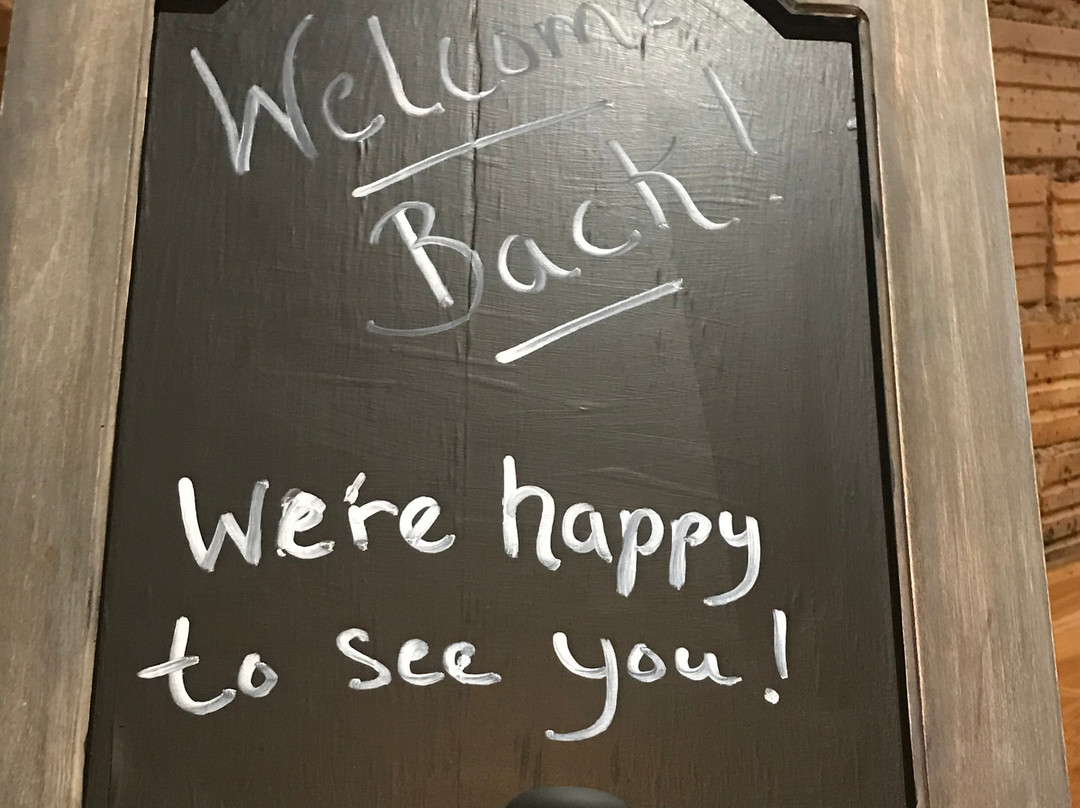 Welcome
Back!
We're happy
to see you!